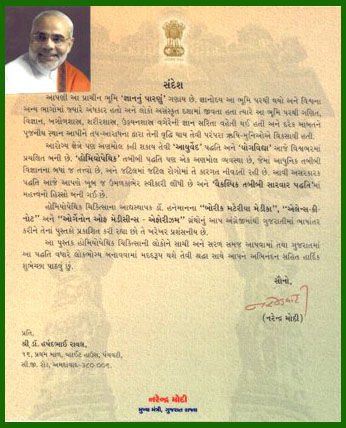 સંદેશ
આપણી આ પ્રાચીન ભૂમિ 'જ્ઞાનનું પારણું' ગણાય છે. જ્ઞાનોદય આ ભૂમિ પરથી થયો અને વિશ્વના
અન્ય ભાગોમાં જ્યારે અંધકાર હતો અને લોકો અસંસ્કૃત દશામાં જીવતા હતા ત્યારે આ ભૂમિ પરથી ગણિત,
વિજ્ઞાન, ખગોળશાસ્ત્ર, શરીરશાસ્ત્ર, ઉડ્ડયનશાસ્ત્ર વગેરેની જ્ઞાન સરિતા વહેતી થઈ હતી અને દરેક બાબતને
પૂજનીય સ્થાન આપીને તપ-આરાધના દ્વારા તેની વૃદ્ધિ થાય તેવી પરંપરા ઋષિ-મુનિઓએ વિકસાવી હતી.
આરોગ્ય ક્ષેત્રે પણ અણમોલ કહી શકાય તેવી 'આયુર્વેદ' પદ્ધતિ અને 'યોગવિદ્યા' આજે વિશ્વભરમાં
પ્રચલિત બની છે. 'હોમિયોપેથિક' તબીબી પદ્ધતિ પણ એક અણમોલ વ્યવસ્થા છે, જેમાં આધુનિક તબીબી
વિજ્ઞાનના બધાં જ તત્ત્વો છે, અને જટિલમાં જટિલ રોગોમાં તે કારગત નીવડતી રહી છે. આવી અસરકારક
પદ્ધતિ આજે આપણે ખૂબ જ ઉમળકાભેર સ્વીકારી લીધી છે અને 'વૈકલ્પિક તબીબી સારવાર પદ્ધતિ'માં
મહત્ત્વનો હિસ્સો બની ગઈ છે.
હોમિયોપેથિક ચિકિત્સાના આદ્યસ્થાપક ડૉ. હનેમાનના "બોરીક મટેરીયા મેડીકા", "એલેન્સ-કી-
નોટ" અને "ઓર્ગેનોન ઓફ મેડીસીન્સ - એફોરીઝમ" ગ્રંથોનું આપ અંગ્રેજીમાંથી ગુજરાતીમાં ભાષાંતર
કરીને તેનાં પુસ્તકો પ્રકાશિત કરી રહ્યા છો તે ખરેખર પ્રશંસનીય છે.
આ પુસ્તક હોમિયોપેથિક ચિકિત્સાની લોકોને સાચી અને સરળ સમજ આપવામાં તથા ગુજરાતમાં
આ પદ્ધતિ વધારે લોકભોગ્ય બનાવવામાં મદદરૂપ થશે તેવી શ્રદ્ધા સાથે આપને અભિનંદન સહિત હાર્દિક
શુભેચ્છા પાઠવું છું.
સૌનો,
(નરેન્દ્ર મોદી)
પ્રતિ,
શ્રી ડૉ. હર્ષદભાઈ રાવલ,
૧૬, પ્રથમ માળ, વ્હાઈટ હાઉસ, પંચવટી,
સી.જી. રોડ, અમદાવાદ-૩૮૦૦૦૬.
નરેન્દ્ર મોદી
મુખ્ય મંત્રી, ગુજરાત રાજ્ય